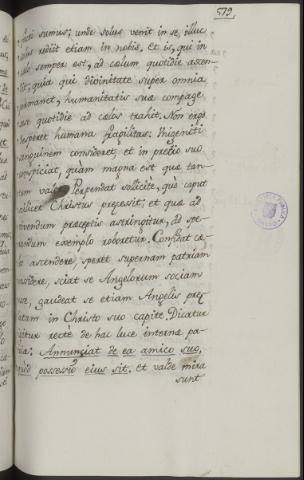 579.
facti sumus; unde solus venit in se, illuc
solus rediit etiam in nobis, et is, qui in
cælo semper est, ad cælum quotidie ascen-
dit, quia qui divinitate super omnia
permanet, humanitatis suæ compage
sese quotidie ad cælos trahit. Non ergo
desperet humana fragilitas: Unigeniti
sanguinem consideret; et in pretio suo
conspiciat, quam magna est quæ tan-
tum valet. Perpendat sollicite, quò caput
scilicet Christus præcessit; et quæ ad
vivendum præceptis astringitur, ad spe-
randum exemplo roboretur. Confidat cæ-
los ascendere, speret supernam patriam
considere, sciat se Angelorum sociam
esse, gaudeat se etiam Angelis præ
latam in Christo suo capite. Dicatur
igitur rectè de hac luce internæ pa-
triæ: Annunciat de ea amico suo,
quod possessio eius sit. et valde mira
sunt